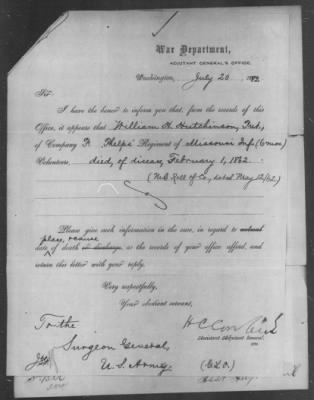 War Department,
ADJUTANT GENERAL'S OFFICE.
Washington, July 20
Sir
I have the honor to inform you that, from the records of this
Office, it appears that William H. Hutchinson, Pvt.,
of Company F. Phelps' Regiment of Missouri Inf. (6 mos)
Volunteers, died, of disease, February 1, 1862.
(M.O. Roll of Co., dated May 12/62.)
Please give such information in the case, in regard to actual
place, & cause
date of death or discharge, as the records of your office afford, and
return this letter with your reply.
Very respectfully,
Your obedient servant,
To the
Surgeon General,
U.S. Army.
Assistant Adjutant General.